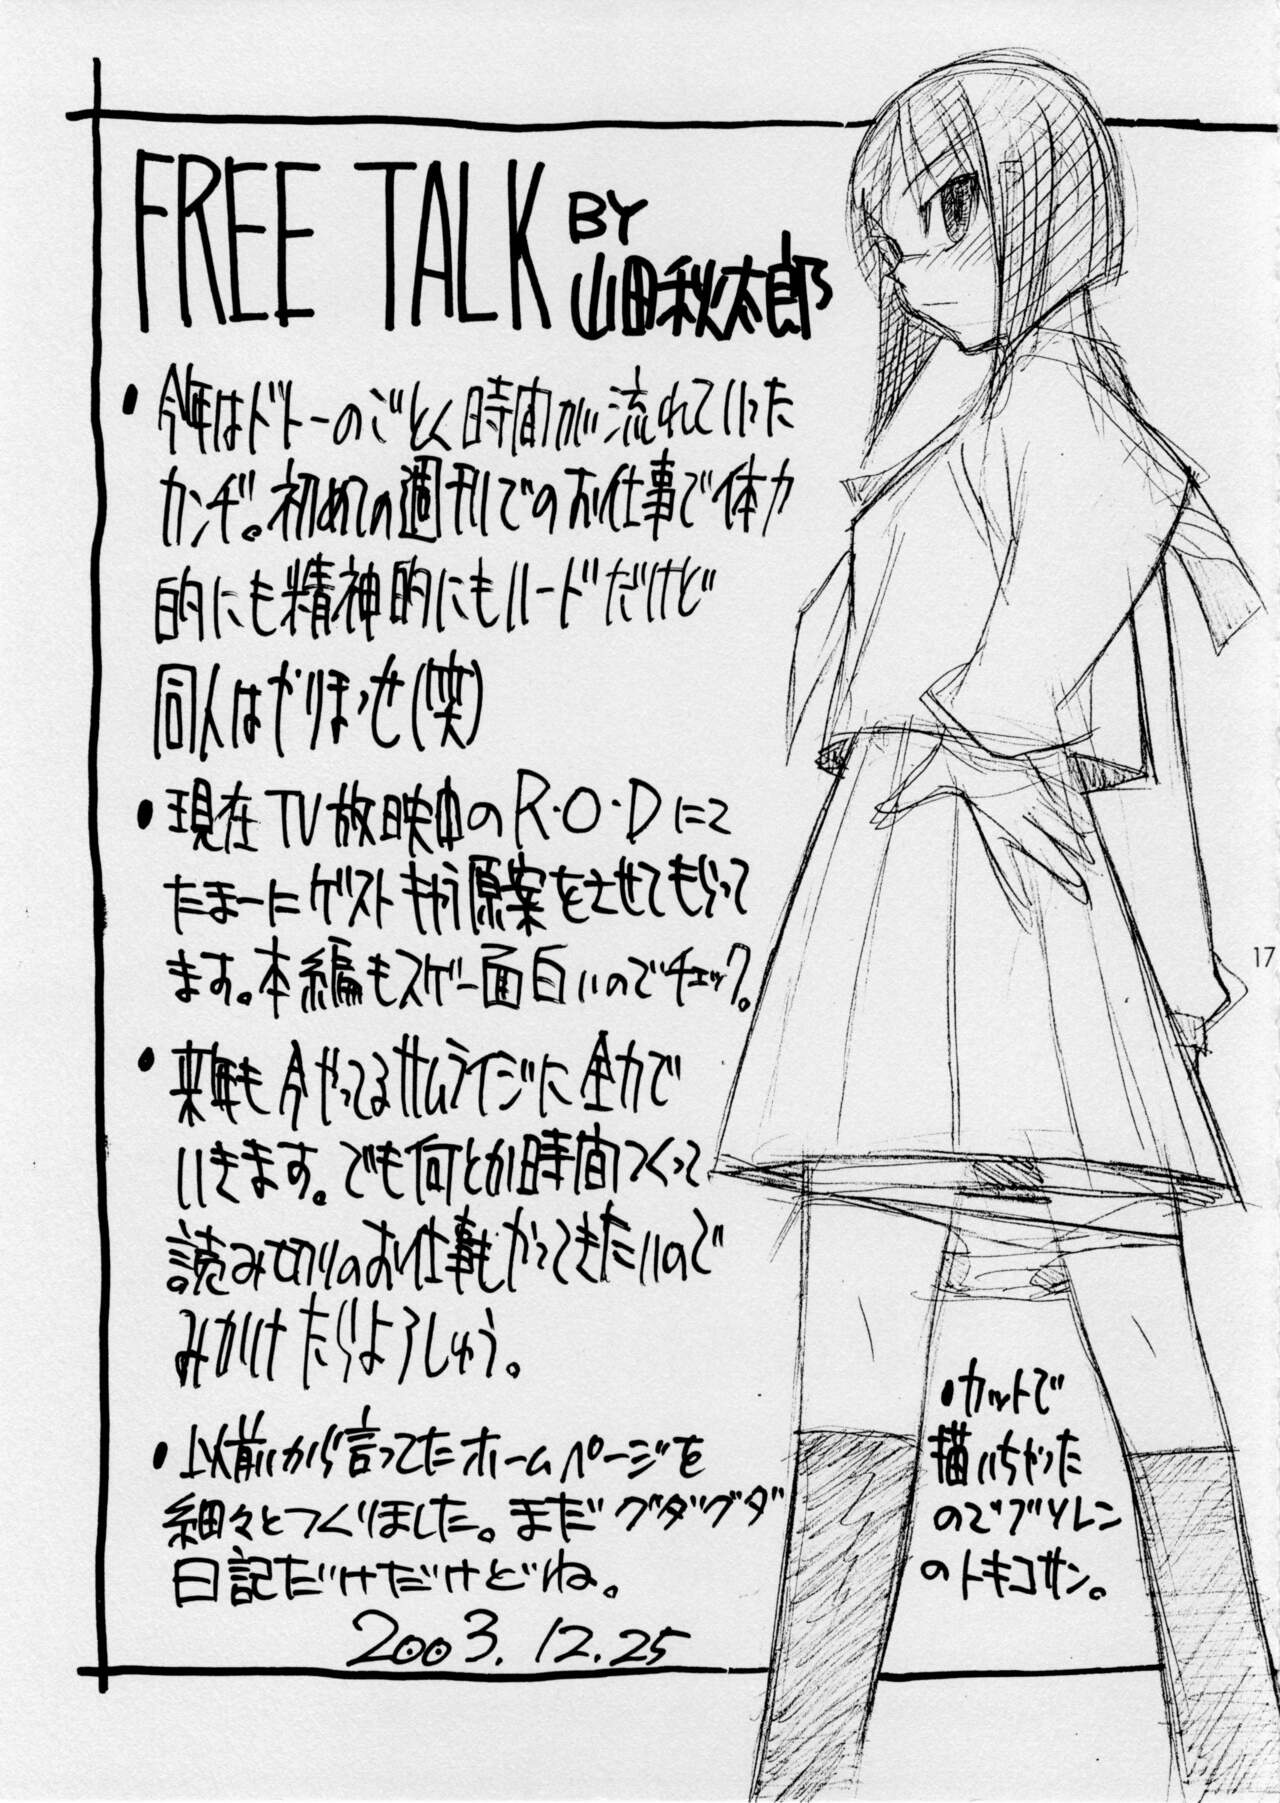 FREE TALK
BY
山田秋太郎
・今年はドトーのごとく時間が流れていった
カンヂ。初めての週刊でのお仕事で体力
的にも精神的にもハードだけど
同人はやりまっせ(笑)
・現在TV放映中のR・O・Dにて
たまーにゲストキャラ原案をさせてもらって
ます。本編もスゲー面白いのでチェック。
・来年も今やってるサムライジに全力で
いきます。でも何とか時間つくって
読み切りのお仕事もやってきたいので
みかけたらよろしゅう。
・以前から言ってたホームページを
細々とつくりました。まだグダグダ
日記だけだけどね。
2003.12.25
・カットで
描いちゃった
のでブソレン
のトキコサン。
17